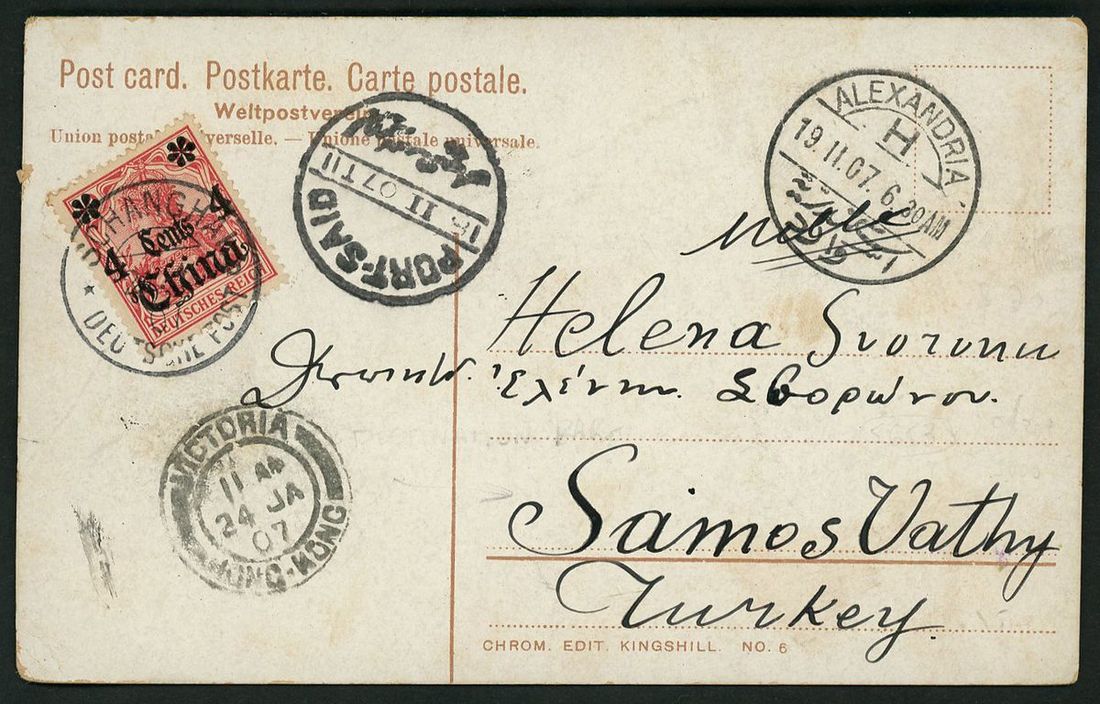 Post card. Postkarte. Carte postale.
Weltpostverein
Union postale universelle. — Unione postale universale.
4 4
Cents
China
DEUTSCHES REICH
SHANGHAI
* DEUTSCHE POST
PORT-SAID
II 07 T II
ALEXANDRIA
H
19.II.07. 6.30AM
Helena Svoronu
Ἑλένην Σβορώνου.
Samos Vathy
Turkey
VICTORIA
11 AM
24 JA
07
HONG-KONG
CHROM. EDIT. KINGSHILL. NO. 6